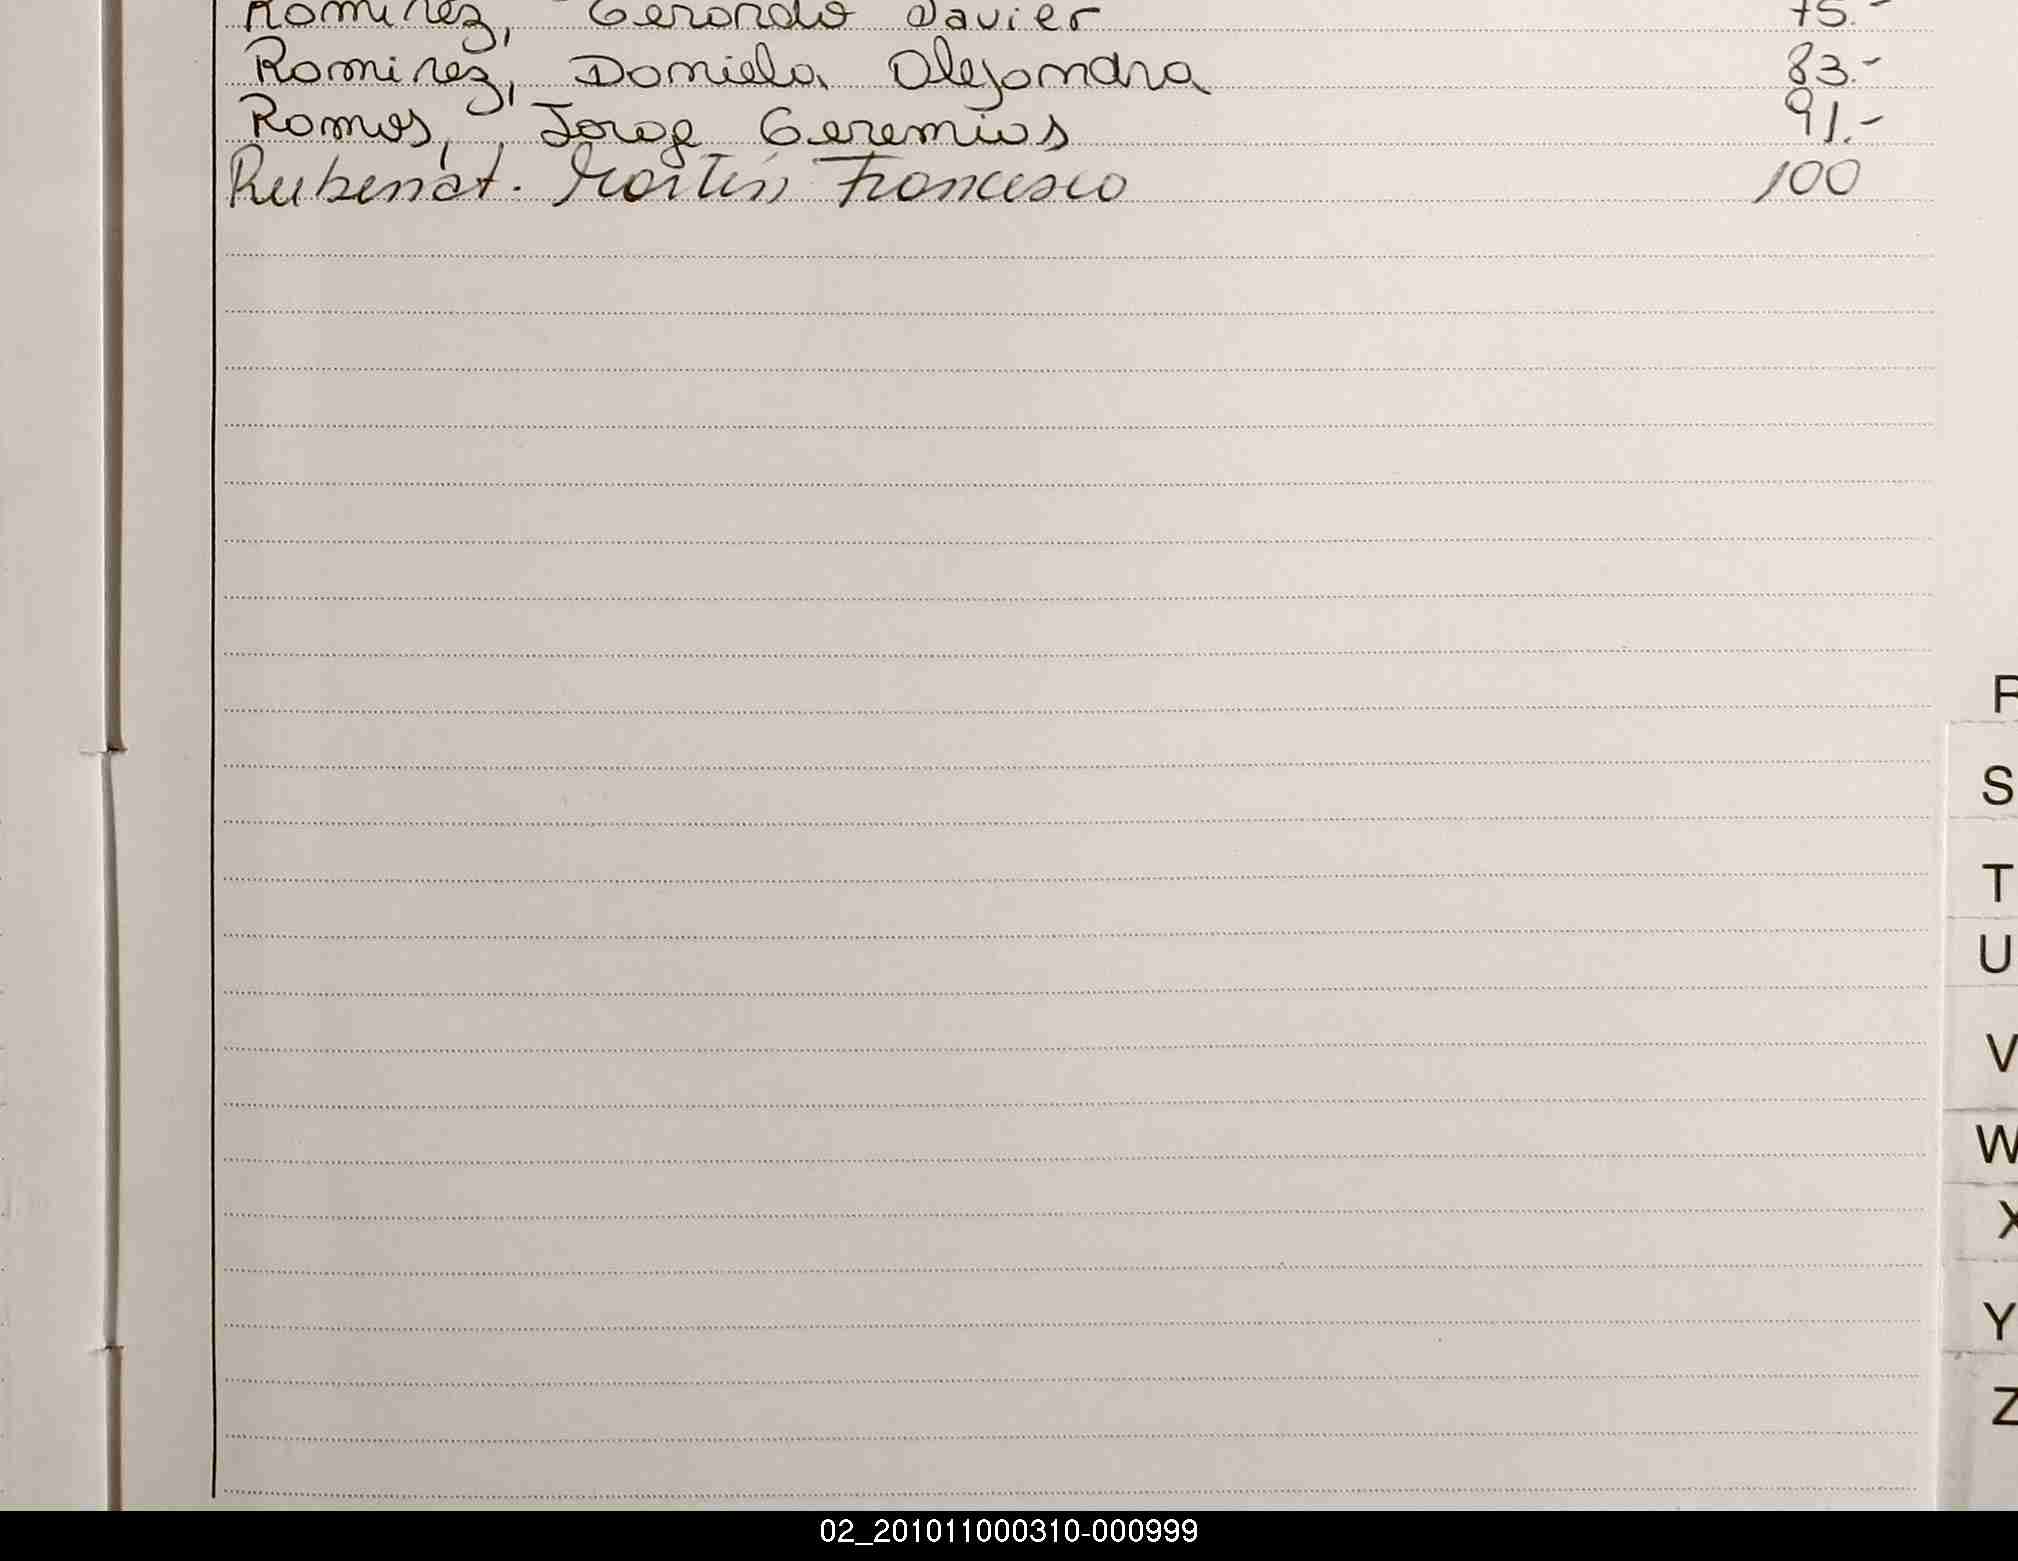 Ramirez, Gerardo Javier 75.-
Ramirez, Daniela Alejandra 83.-
Ramos, Jorge Geremias 91.-
Rubenat. Martín Francesco 100
R
S
T
U
V
W
X
Y
Z
02_201011000310-000999